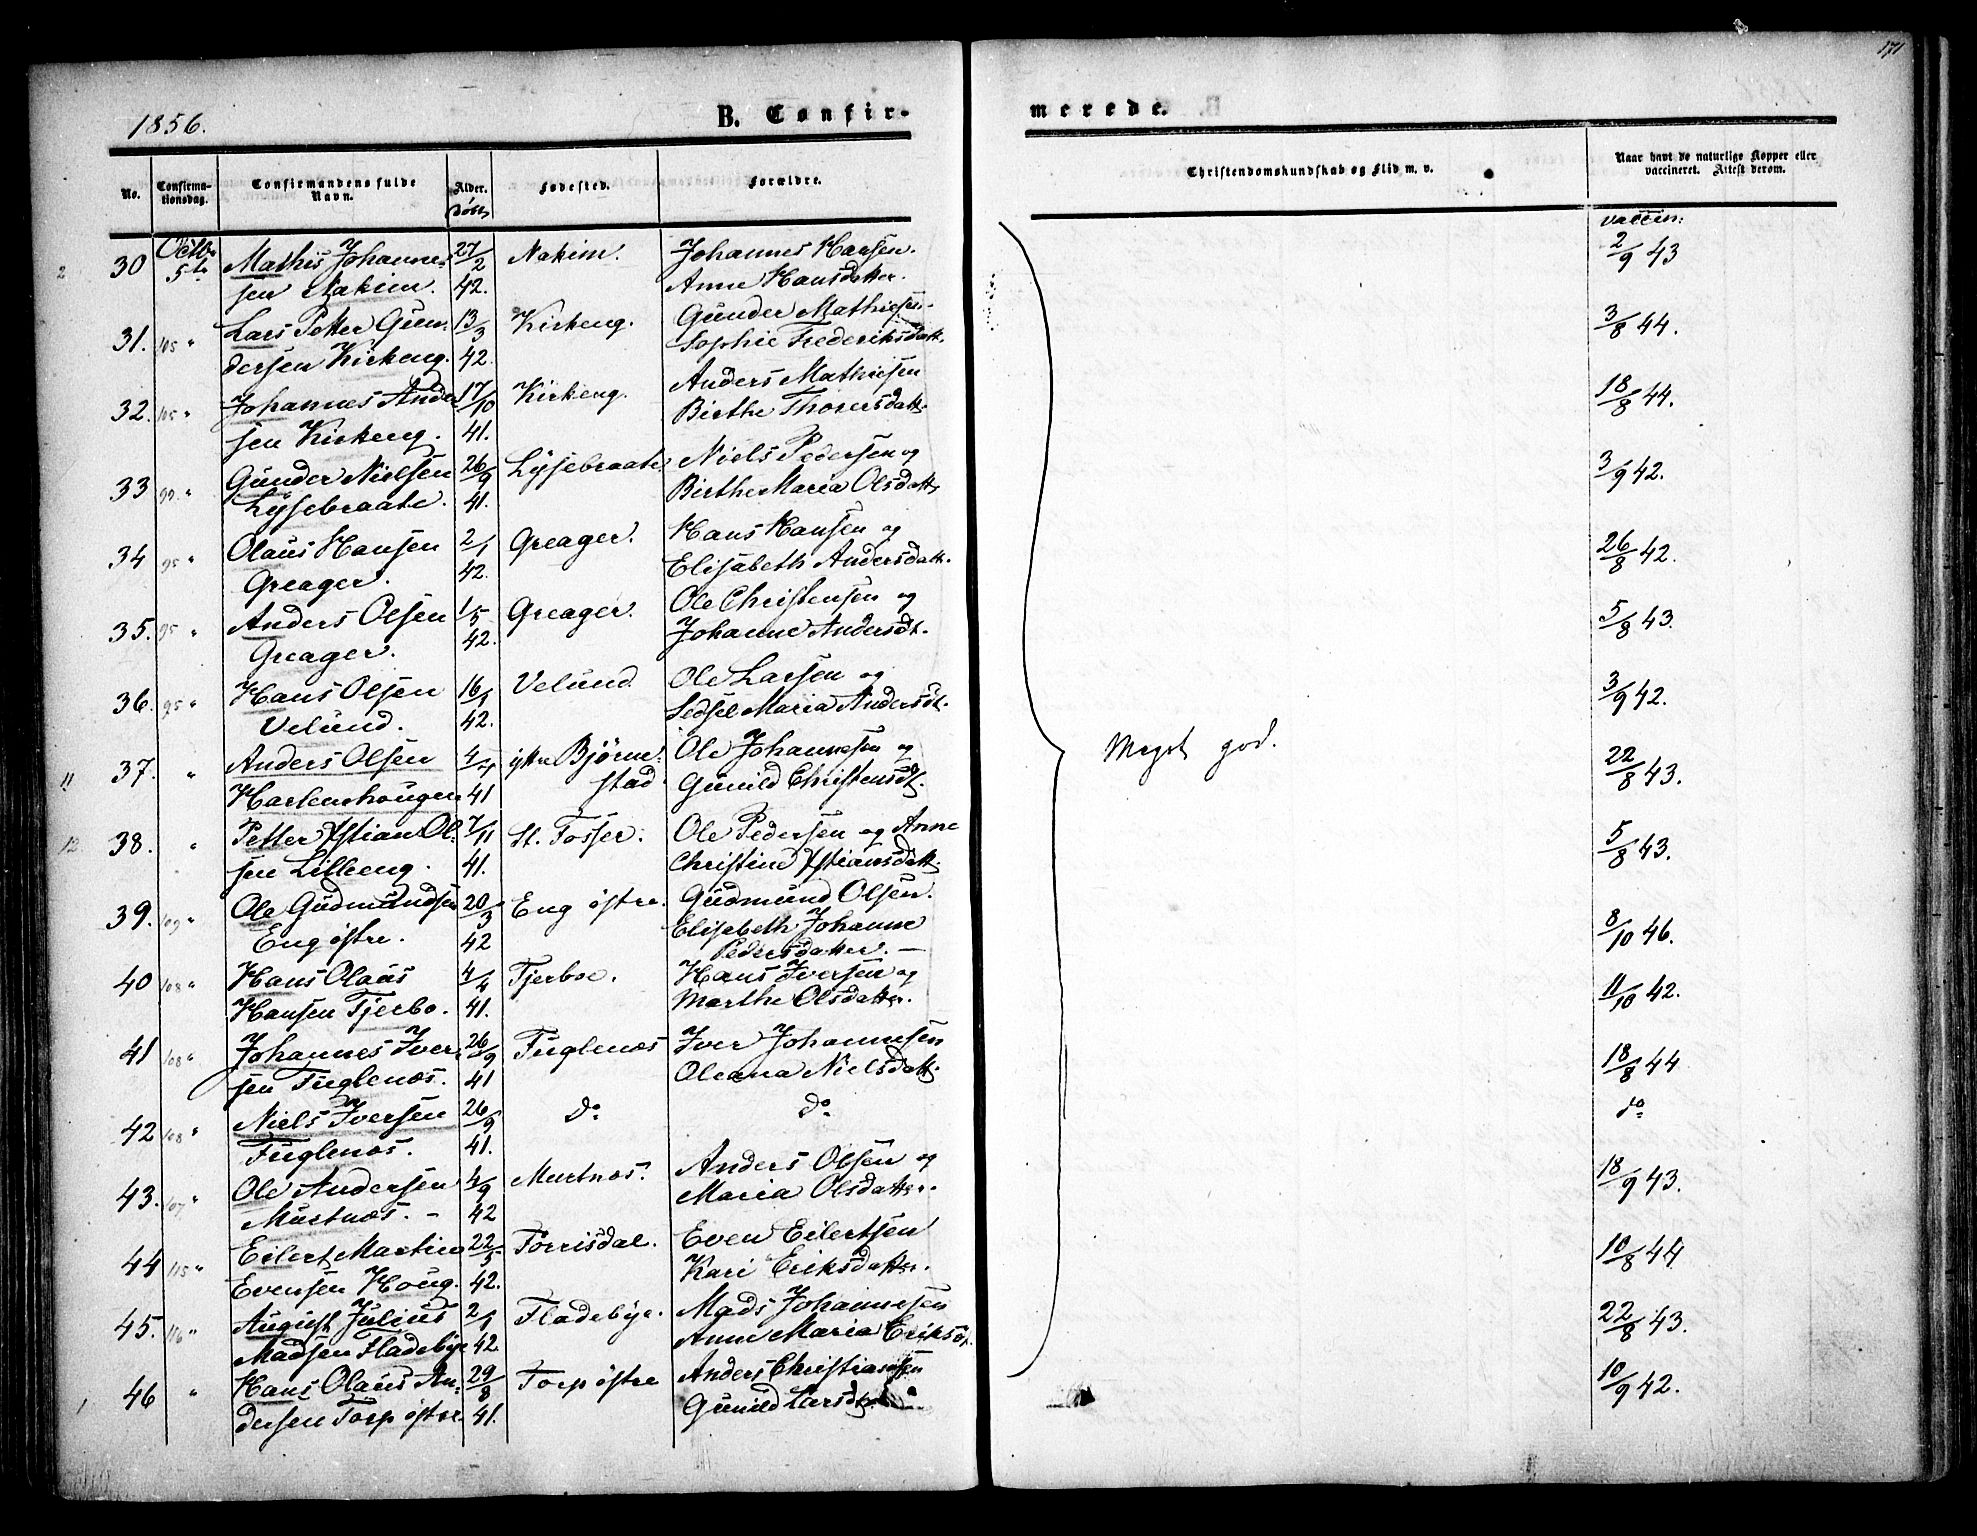 171
1856.
B. Confir-
merede.
No.
Confirma-
tionsdag.
Confirmandens fulde
Navn.
Alder.
døbt
Fødested.
Forældre.
Christendomskundskab og Flid m. v.
Naar havt de naturlige Kopper eller
vaccineret. Attest derom.
vaccin:
2 30 Octb. 5te Mathis Johanne- 27/2 Nakim. Johannes Hansen. 2/9 43
sen Nakim. 42. Anne Hansdatter.
31. 105 " Lars Petter Gun- 13/3 Kirkeng. Gunder Mathiesen 3/8 44.
dersen Kirkeng. 42. Sophie Frederiksdatt.
32. 105 " Johannes Ander 17/10 Kirkeng. Anders Mathiesen 18/8 44.
sen Kirkeng. 41. Birthe Thorersdatt.
33 99. " Gunder Nielsen 26/9 Lysebraate. Niels Pedersen og 3/9 42.
Lysebraate. 41. Birthe Maria Olsdatt.
34 95 " Olaus Hansen 2/1 Greager. Hans Hansen og 26/8 42.
Greager. 42. Elisabeth Andersdatt.
35. 95 " Anders Olsen 1/5 Greager. Ole Christensen og 5/8 43.
Greager. 42. Johanne Andersdt.
36. 95 " Hans Olsen 16/1 Velund Ole Larsen og 3/9 42.
Velund. 42. Sedsel Maria Andersdt.
Meget god.
11 37. " Anders Olsen 4/7 ytre Bjørne- Ole Johannesen og 22/8 43.
Harlenshougen 41 stad. Gunild Christensdt.
12 38. " Petter Xstian Ol- 7/11 St. Tosser. Ole Pedersen og Anne 5/8 43.
sen Lilleeng. 41. Christine Xstiansdatt.
39. 109 " Ole Gudmundsen 20/3 Eng østre. Gudmund Olsen. 8/10 46.
Eng østre. 42 Elisebeth Johanne
Pedersdatter. —
40 108 " Hans Olaus 4/4 Tjerboe. Hans Iversen og 11/10 42.
Hansen Tjerbo. 41. Marthe Olsdatter.
41 108 " Johannes Iver- 26/9 Fuglenæs Iver Johannesen 18/8 44
sen Fuglenæs. 41 Oleana Nielsdatt.
42 108 " Niels Iversen 26/9 do do do
Fuglenæs. 41.
43. 107 " Ole Andersen 4/9 Murtnæs. Anders Olsen og 18/9 43.
Murtnæs. - 42 Maria Olsdatter.
44 115 " Eilert Martin 22/3 Torrisdal. Even Eilertsen 10/8 44
Evensen Houg. 42. Kari Eriksdatter.
45. 116 " August Julius 2/1 Fladebye. Mads Johannesen 22/8 43.
Madsen Fladebye 42. Anne Maria Eriksdt.
1 46 " Hans Olaus An- 29/8 Torp østre Anders Christiansen 10/9 42.
dersen Torp østre. 41. Gunild Larsdt.